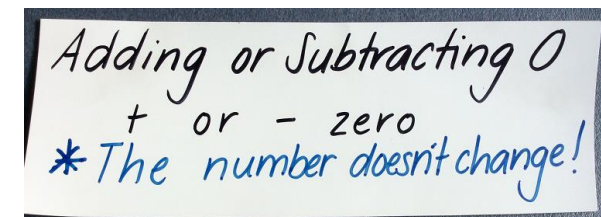 Adding or Subtracting 0
+ or - zero
* The number doesn't change!